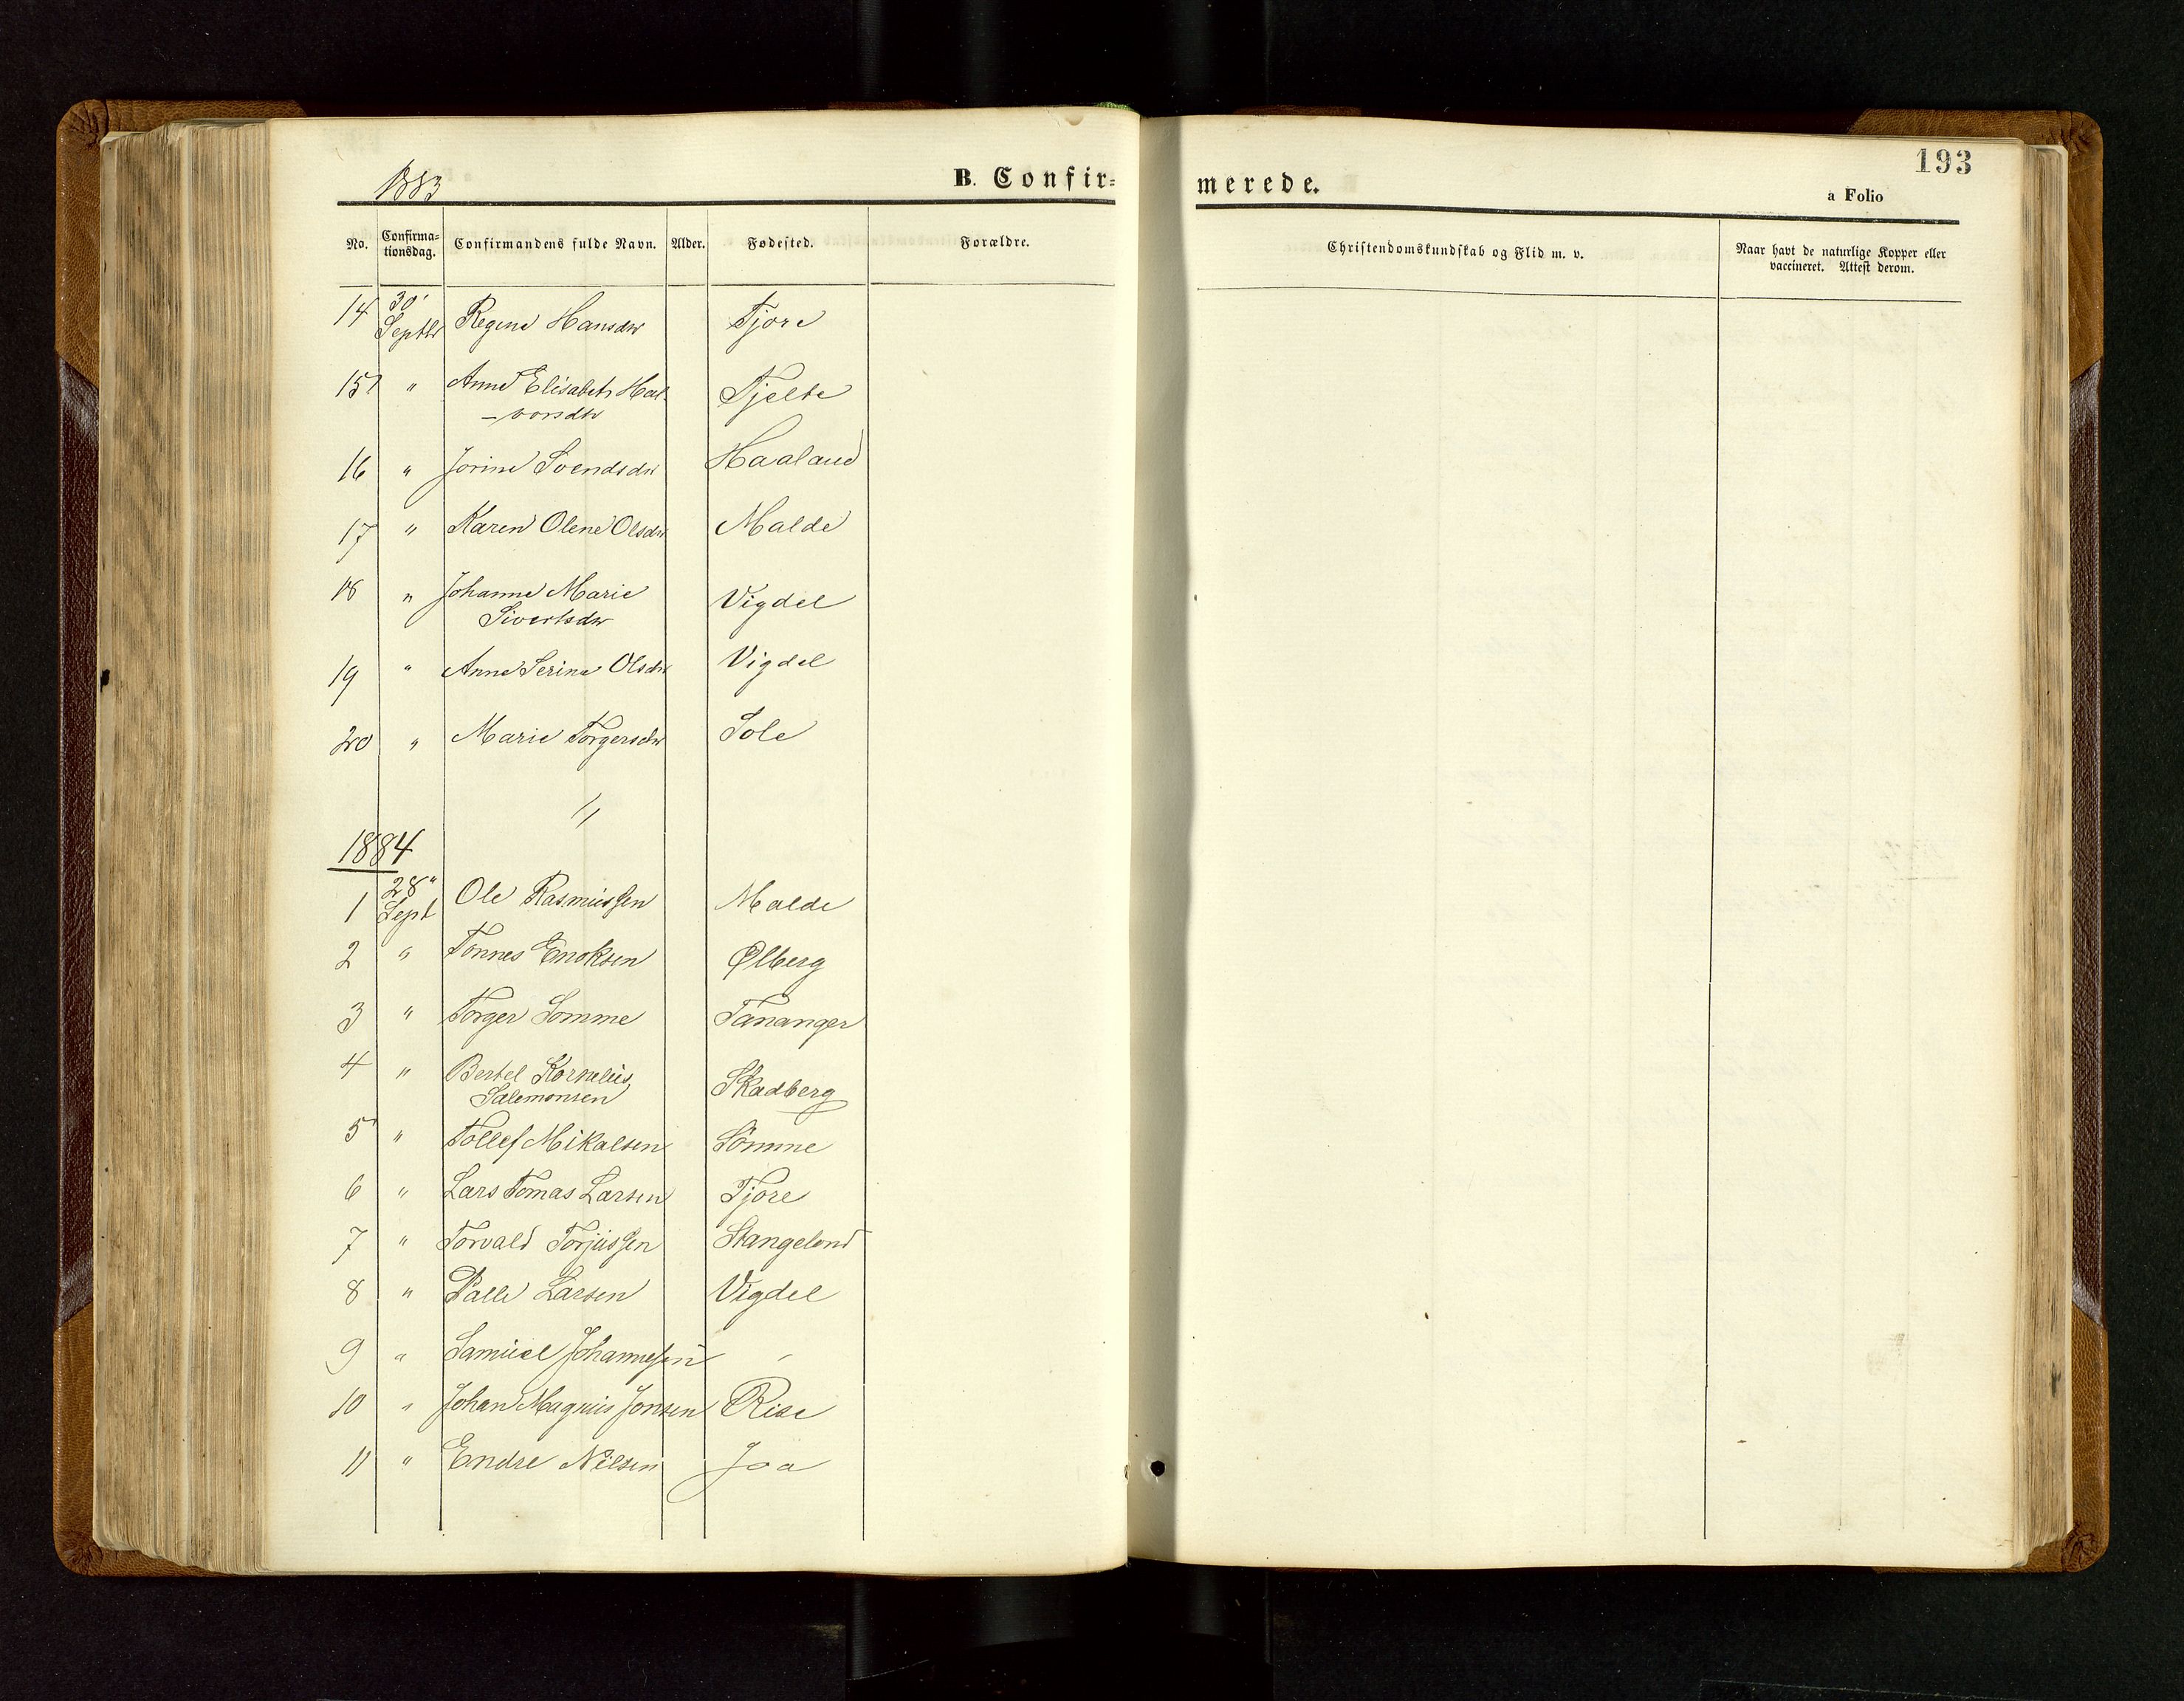 1883
B. Confir=
merede.
193
a Folio
No. Confirma=tionsdag. Confirmandens fulde Navn. Alder. Fødested. Forældre. Christendomskundskab og Flid m. v. Naar havt de naturlige Kopper eller vaccineret. Attest derom.
14 30' Septbr Regine Hansdtr Tjore
15 " Anne Elisabeth Hal-
-vorsdtr Tjelte
16 " Jorine Svendsdtr Haaland
17 " Karen Olene Olsdtr Malde
18 " Johanne Marie
Sivertsdtr Vigdel
19 " Anne Serine Olsdtr Vigdel
20 " Marie Torgersdtr Sole
"
1884
1 28" Sept Ole Rasmussen Malde
2 " Tönnes Enoksen Ølberg
3 " Torger Somme Tananger
4 " Bertel Kornelius
Salemonsen Skadberg
5 " Tollef Mikalsen Sömme
6 " Lars Tomas Larsen Tjore
7 " Torvald Torjussen Stangeland
8 " Palle Larsen Vigdel
9 " Samuel Johannesen "
10 " Johan Magnus Jonsen Rise
11 " Endre Nilsen Joa